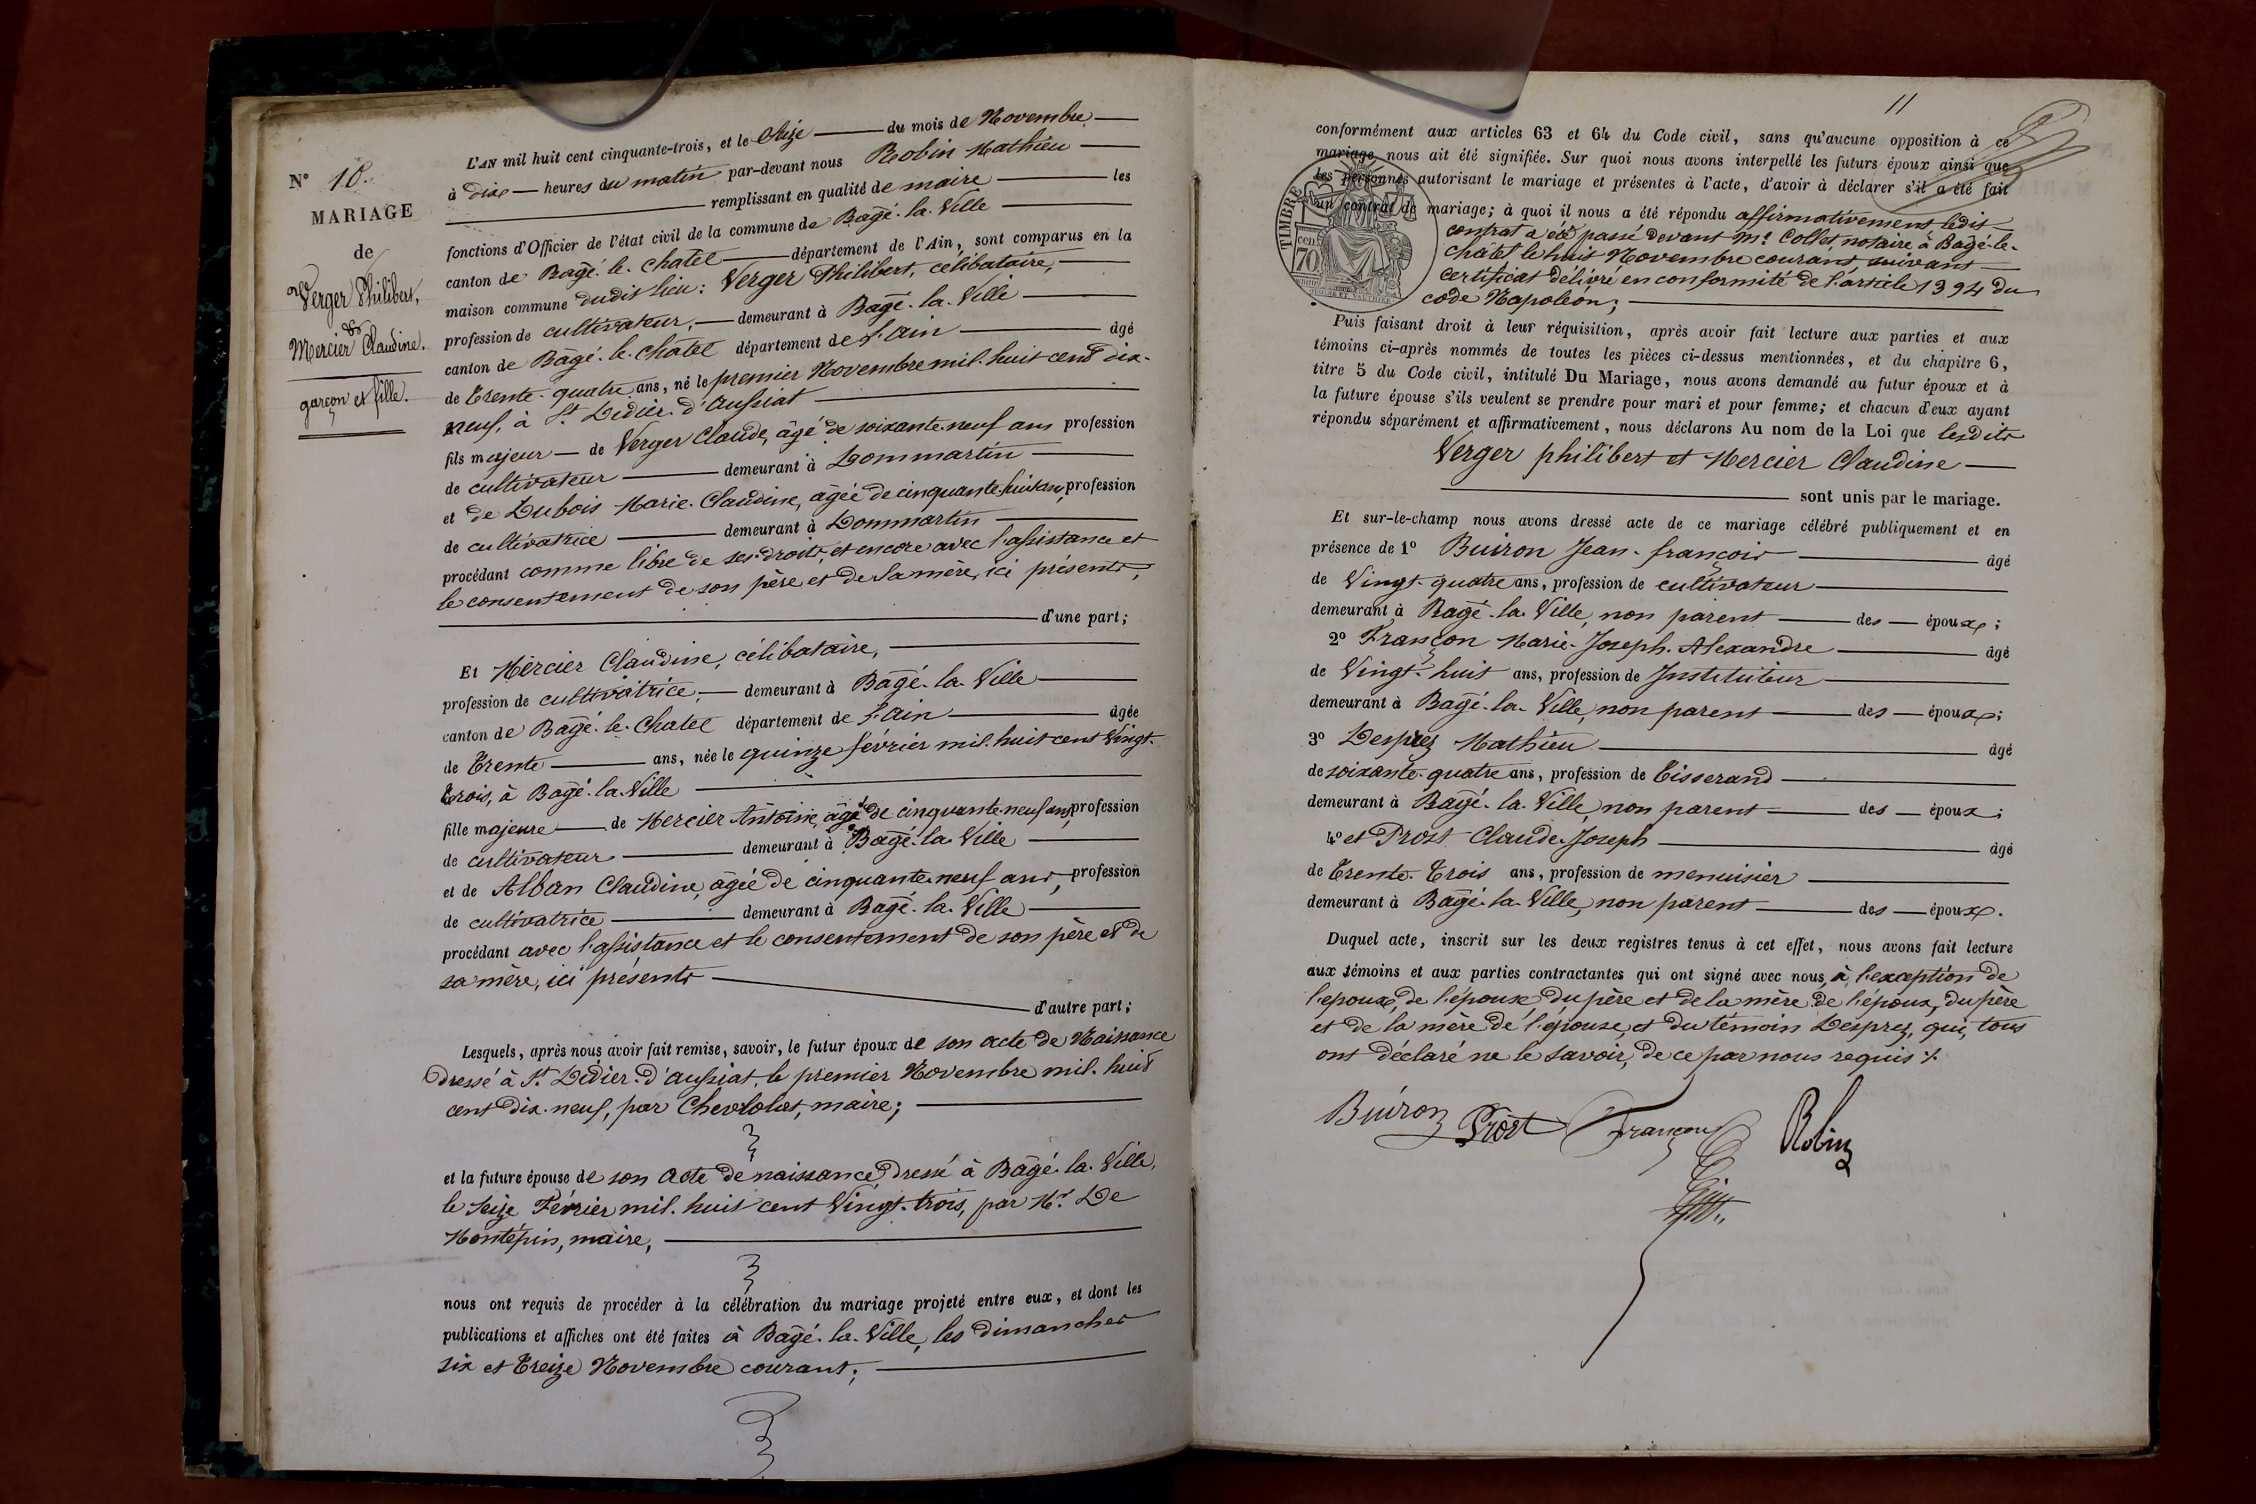 N° 10.
MARIAGE
de
Verger Philibert,
&
Mercier Claudine.
garçon et fille.
L'AN mil huit cent cinquante-trois, et le seize du mois de Novembre
à dix heures du matin par-devant nous Robin Mathieu
remplissant en qualité de maire les
fonctions d'Officier de l'état civil de la commune de Bagé-la-Ville
canton de Bagé-le-Chatel département de l'Ain, sont comparus en la
maison commune dudit lieu : Verger Philibert, célibataire,
profession de cultivateur, demeurant à Bagé-la-Ville
canton de Bagé-le-Châtel département de l'Ain âgé
de Trente-quatre ans, né le premier Novembre mil-huit cent dix-
neuf, à St Didier-d'Aussiat
fils majeur de Verger Claude, âgé de soixante-neuf ans profession
de cultivateur demeurant à Dommartin
et de Dubois Marie-Claudine, âgée de cinquante-huit ans, profession
de cultivatrice demeurant à Dommartin
procédant comme libre de ses droits, et encore avec l'assistance et
le consentement de son père et de sa mère, ici présents,
d'une part ;
Et Mercier Claudine, célibataire,
profession de cultivatrice, demeurant à Bagé-la-Ville
canton de Bagé-le-Chatel département de l'Ain âgée
de Trente ans, née le quinze février mil-huit cent Vingt-
trois, à Bagé-la-Ville
fille majeure de Mercier Antoine, âgé de cinquante-neuf ans, profession
de cultivateur demeurant à Bagé-la-Ville
et de Alban Claudine, âgée de cinquante-neuf ans, profession
de cultivatrice demeurant à Bagé-la-Ville
procédant avec l'assistance et le consentement de son père et de
sa mère, ici présents
d'autre part ;
Lesquels, après nous avoir fait remise, savoir, le futur époux de son acte de Naissance
dressé à St Didier-d'Aussiat, le premier Novembre mil-huit
cent dix-neuf, par Chevrolat, maire ;
et la future épouse de son acte de naissance dressé à Bâgé-la-Ville,
le Seize Février mil-huit cent Vingt-trois, par Mr De
Montépin, maire,
nous ont requis de procéder à la célébration du mariage projeté entre eux, et dont les
publications et affiches ont été faites à Bagé-la-Ville, les dimanches
six et treize Novembre courant ;
11
conformément aux articles 63 et 64 du Code civil, sans qu'aucune opposition à ce
mariage nous ait été signifiée. Sur quoi nous avons interpellé les futurs époux ainsi que
les personnes autorisant le mariage et présentes à l'acte, d'avoir à déclarer s'il a été fait
un contrat de mariage ; à quoi il nous a été répondu affirmativement ledit
contrat a été passé devant Me Collet, notaire à Bagé-le-
Châtel le huit Novembre courant suivant
certificat délivré en conformité de l'article 1394 du
code Napoléon ;
TIMBRE
70
Puis faisant droit à leur réquisition, après avoir fait lecture aux parties et aux
témoins ci-après nommés de toutes les pièces ci-dessus mentionnées, et du chapitre 6,
titre 5 du Code civil, intitulé Du Mariage, nous avons demandé au futur époux et à
la future épouse s'ils veulent se prendre pour mari et pour femme ; et chacun d'eux ayant
répondu séparément et affirmativement, nous déclarons Au nom de la Loi que lesdits
Verger philibert et Mercier Claudine
sont unis par le mariage.
Et sur-le-champ nous avons dressé acte de ce mariage célébré publiquement et en
présence de 1° Buiron Jean-françois âgé
de Vingt-quatre ans, profession de cultivateur
demeurant à Bagé-la-Ville, non parent des époux ;
2° Françon Marie-Joseph-Alexandre âgé
de Vingt-huit ans, profession de Instituteur
demeurant à Bagé-la-Ville, non parent des époux ;
3° Desprez Mathieu âgé
de soixante-quatre ans, profession de Tisserand
demeurant à Bagé-la-Ville, non parent des époux ;
4° et Prost Claude-Joseph âgé
de Trente-trois ans, profession de menuisier
demeurant à Bagé-la-Ville, non parent des époux.
Duquel acte, inscrit sur les deux registres tenus à cet effet, nous avons fait lecture
aux témoins et aux parties contractantes qui ont signé avec nous, à l'exception de
l'époux, de l'épouse, du père et de la mère de l'époux, du père
et de la mère de l'épouse, et du témoin Desprez, qui, tous
ont déclaré ne le savoir, de ce par nous requis %.
Buiron Prost Françon Robin